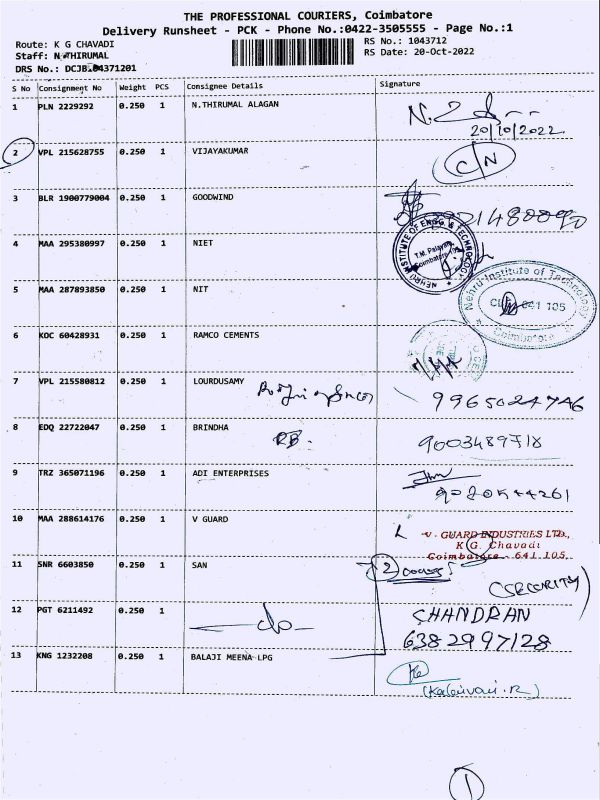 THE PROFESSIONAL COURIERS, Coimbatore
Delivery Runsheet - PCK - Phone No.:0422-3505555 - Page No.:1
Route: K G CHAVADI
RS No.: 1043712
Staff: N.THIRUMAL
RS Date: 20-Oct-2022
DRS No.: DCJB.04371201
S No Consignment No Weight PCS Consignee Details Signature
1 PLN 2229292 0.250 1 N.THIRUMAL ALAGAN
20/10/2022
2 VPL 215628755 0.250 1 VIJAYAKUMAR C/N
3 BLR 1900779004 0.250 1 GOODWIND
4 MAA 295380997 0.250 1 NIET
NEHRU INSTITUTE OF ENGG. & TECHNOLOGY
T.M. Palayam,
Coimbatore
5 MAA 287893850 0.250 1 NIT
Nehru Institute of Technology
641 105
Coimbatore
6 KOC 60428931 0.250 1 RAMCO CEMENTS
7 VPL 215580812 0.250 1 LOURDUSAMY
9965024746
8 EDQ 22722047 0.250 1 BRINDHA
RB.
9003489718
9 TRZ 365071196 0.250 1 ADI ENTERPRISES
10 MAA 288614176 0.250 1 V GUARD
V. GUARD INDUSTRIES LTD.,
K G. Chavadi
Coimbatore - 641 105.
11 SNR 6603850 0.250 1 SAN
2
(SECURITY)
12 PGT 6211492 0.250 1
CHANDRAN
6382997128
13 KNG 1232208 0.250 1 BALAJI MEENA LPG
(Kalaivani.R)
1